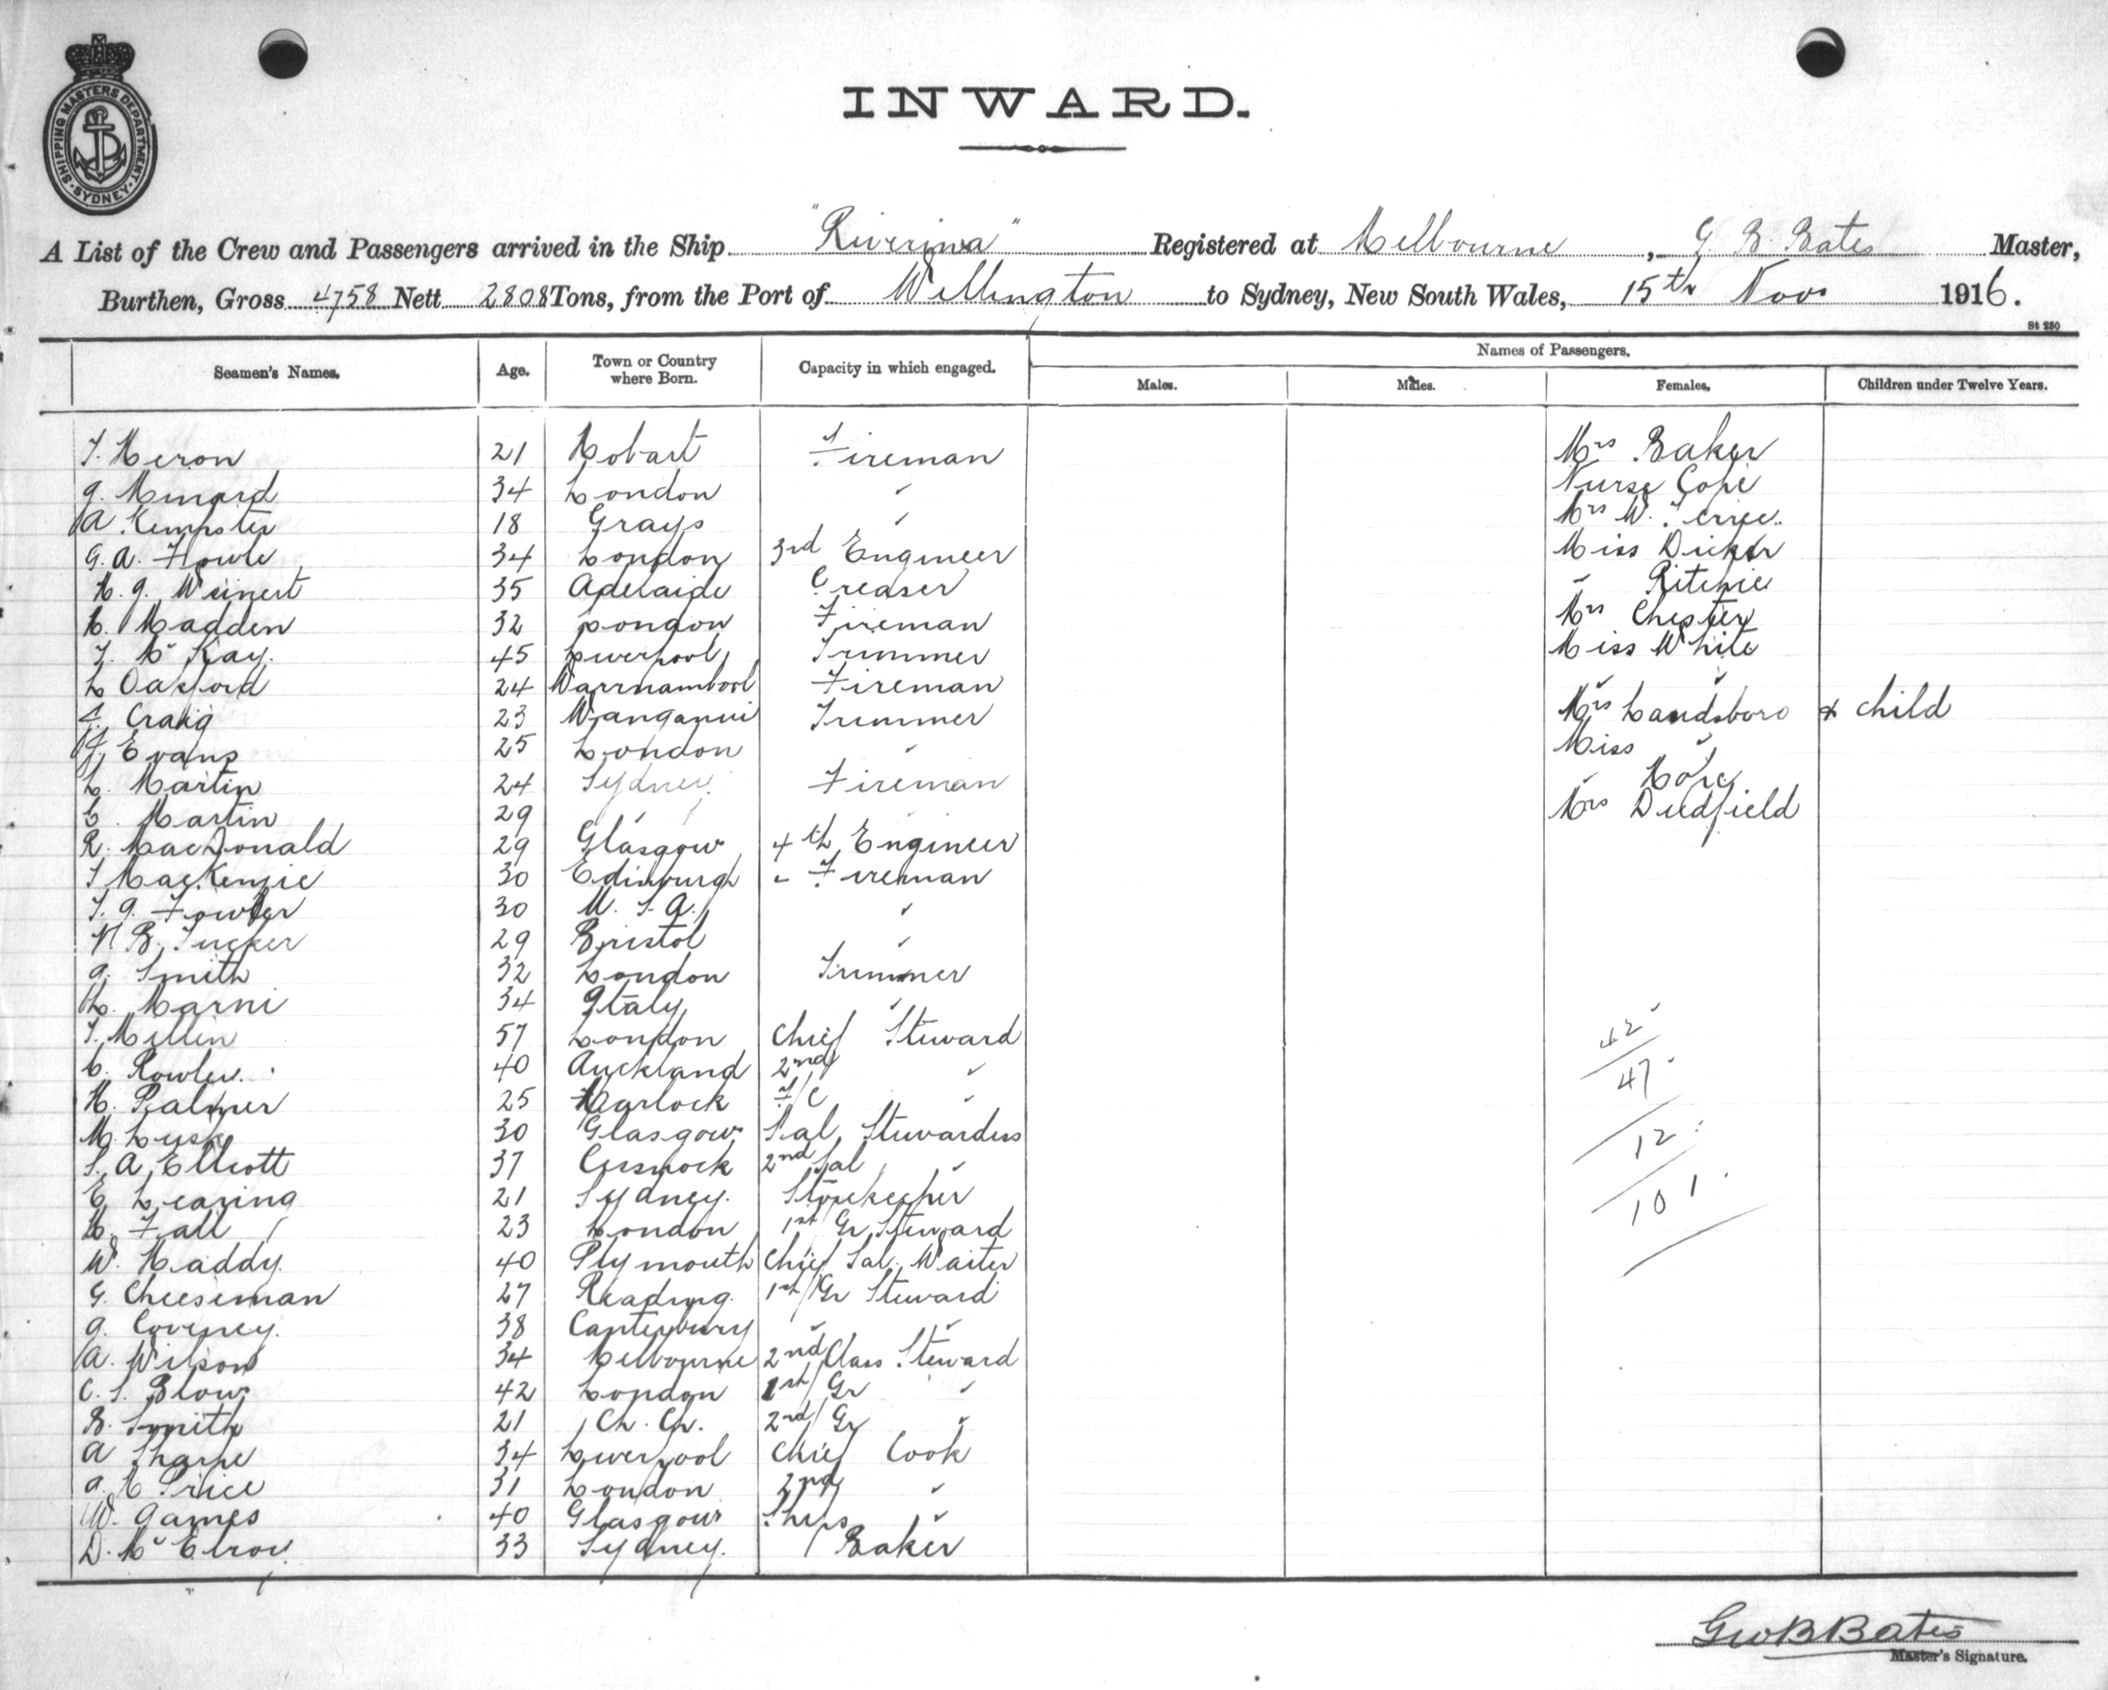 SHIPPING MASTERS DEPARTMENT · SYDNEY ·
INWARD.
A List of the Crew and Passengers arrived in the Ship "Riverina" Registered at Melbourne, G. B. Bates Master,
Burthen, Gross 4758 Nett 2808 Tons, from the Port of Wellington to Sydney, New South Wales, 15th Novr 1916.
St 250
Seamen's Names. Age. Town or Country where Born. Capacity in which engaged. Names of Passengers.
Males. Males. Females. Children under Twelve Years.
T. Heron 21 Hobart Fireman Mrs Baker
J. Minard 34 London " Nurse Cope
A Kempster 18 Grays " Mrs W.
G. A. Fowle 34 London 3rd Engineer Miss
H. J. Weinert 35 Adelaide Greaser " Ritchie
H. Madden 32 London Fireman Mrs Chester
T. Mc Kay. 45 Liverpool Trimmer Miss White
L Oakford 24 Warrnambool Fireman " "
J. Craig 23 Wanganui Trimmer Mrs Landsboro & child
J. Evans 25 London " Miss "
L. Martin 24 Sydney Fireman " Hore
C. Martin 29 " " Mrs Dudfield
R. MacDonald 29 Glasgow 4th Engineer
J MacKenzie 30 Edinburgh " Fireman
T. J. Fowler 30 U. S. A. "
N B. Tucker 29 Bristol "
J. Smith 32 London Trimmer
L. Marni 34 Italy "
T. Mellin 57 London Chief Steward
C. Rowley. 40 Auckland 2nd "
H. Palmer 25 Harlock F/C "
M. Lusk 30 Glasgow Sal. Stewardess
S. A. Elliott 37 2nd Sal "
E Learing 21 Sydney. Storekeeper
H. Fall 23 London 1st/Gr Steward
W. Haddy. 40 Plymouth Chief Sal. Waiter
G. Cheeseman 27 Reading. 1st/Gr Steward
J. Coveney. 38 Canterbury " "
A. Wilson 34 Melbourne 2nd Class Steward
C. S. Blow. 42 London 1st/Gr "
B. Smith 21 Ch. Ch. 2nd/Gr "
A Sharpe 34 Liverpool Chief Cook
A. H Price 31 London 2nd "
W. James 40 Glasgow Ships "
D. Mc Elroy. 33 Sydney. Baker
42
47
12
101
Geo B Bates
Master's Signature.